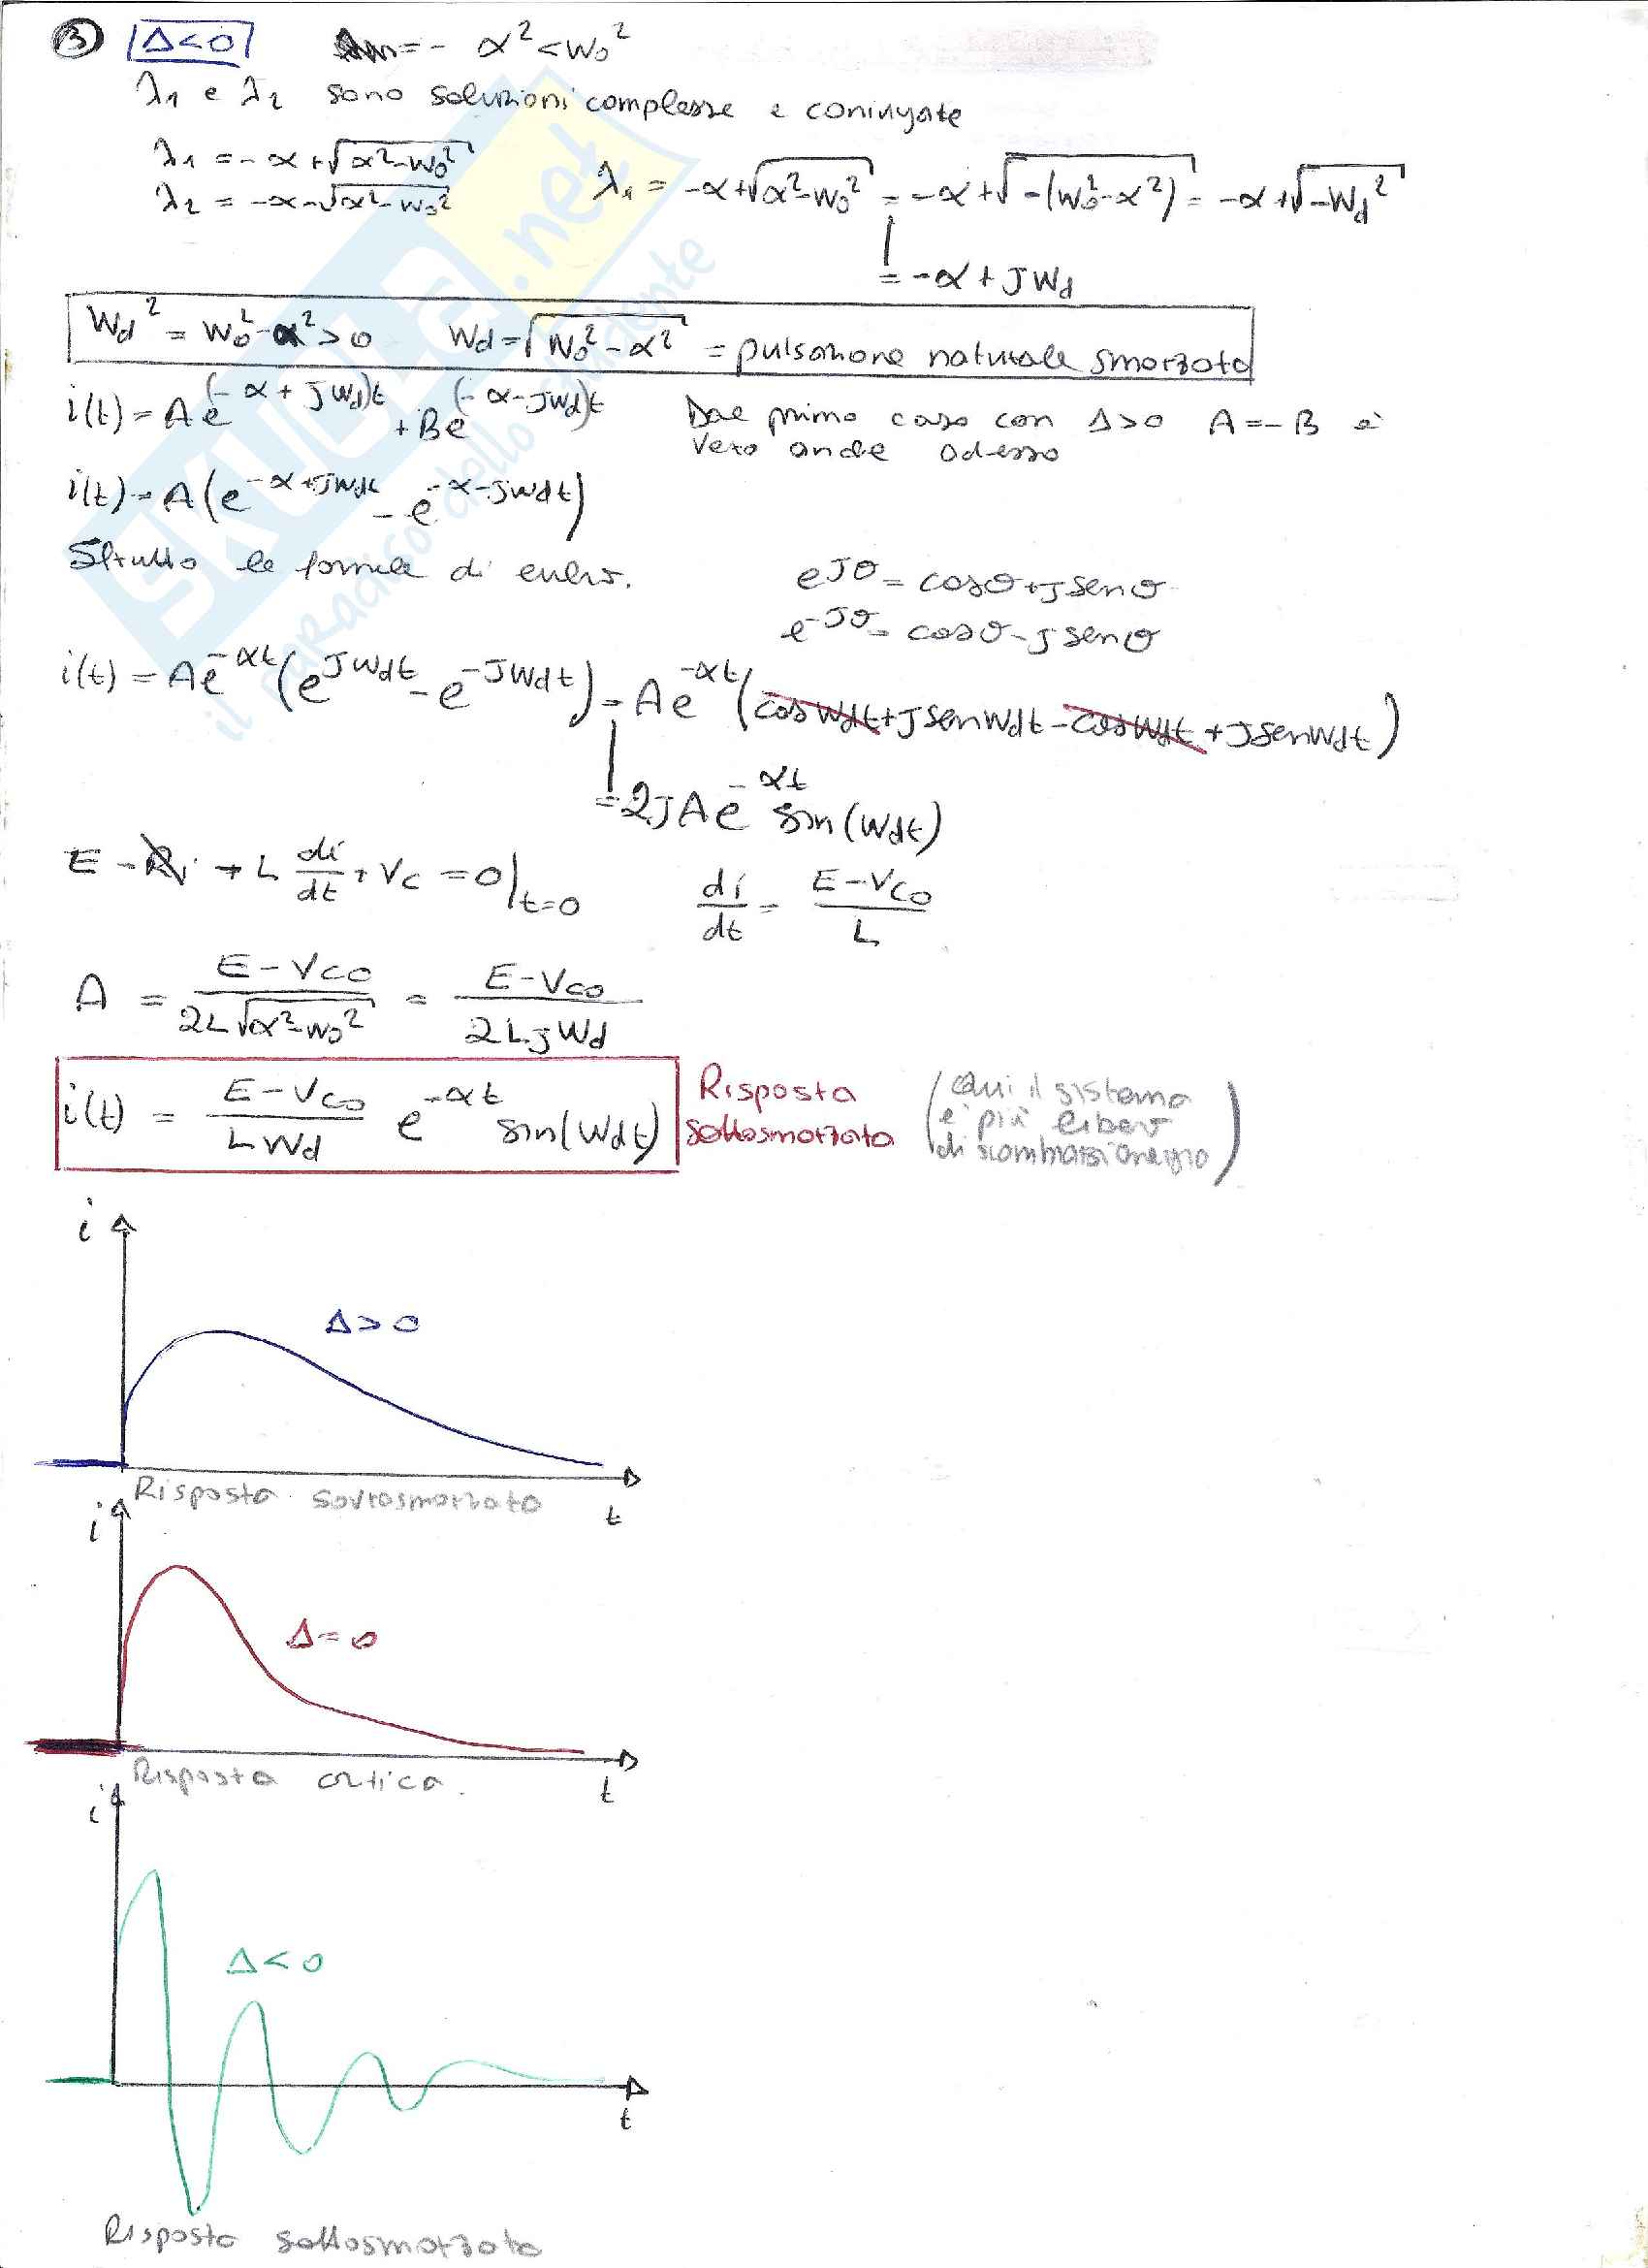 ③ Δ<0 α² < ω₀²
λ₁ e λ₂ sono soluzioni complesse e coniugate
λ₁ = -α + √(α²-ω₀²)
λ₂ = -α - √(α²-ω₀²)
λ₁ = -α + √(α²-ω₀²) = -α + √(-(ω₀²-α²)) = -α + √(-ωd²)
= -α + jωd
ωd² = ω₀² - α² > 0 ωd = √(ω₀² - α²) = pulsazione naturale smorzata
i(t) = A e^(-α + jωd)t + B e^(-α - jωd)t
Dal primo caso con Δ>0 A = -B è
vero anche adesso
i(t) = A (e^-α+jωdt - e^-α-jωdt)
Sfrutto le formule di eulero.
e^jθ = cosθ + j senθ
e^-jθ = cosθ - j senθ
i(t) = A e^-αt (e^jωdt - e^-jωdt) = A e^-αt (cosωdt + j senωdt - cosωdt + j senωdt)
= 2jA e^-αt sin(ωdt)
E - Ri + L di/dt + Vc = 0 |t=0 di/dt = (E - Vco)/L
A = (E - Vco)/(2L√(α²-ω₀²)) = (E - Vco)/(2L jωd)
i(t) = (E - Vco)/(Lωd) e^-αt sin(ωdt)
Risposta
sottosmorzata
(Qui il sistema
è più libero
di scambiarsi energia)
i
Δ > 0
Risposta sovrasmorzata
t
i
Δ = 0
Risposta critica.
t
i
Δ < 0
t
Risposta sottosmorzata
SKUOLA.net
il paradiso dello studente